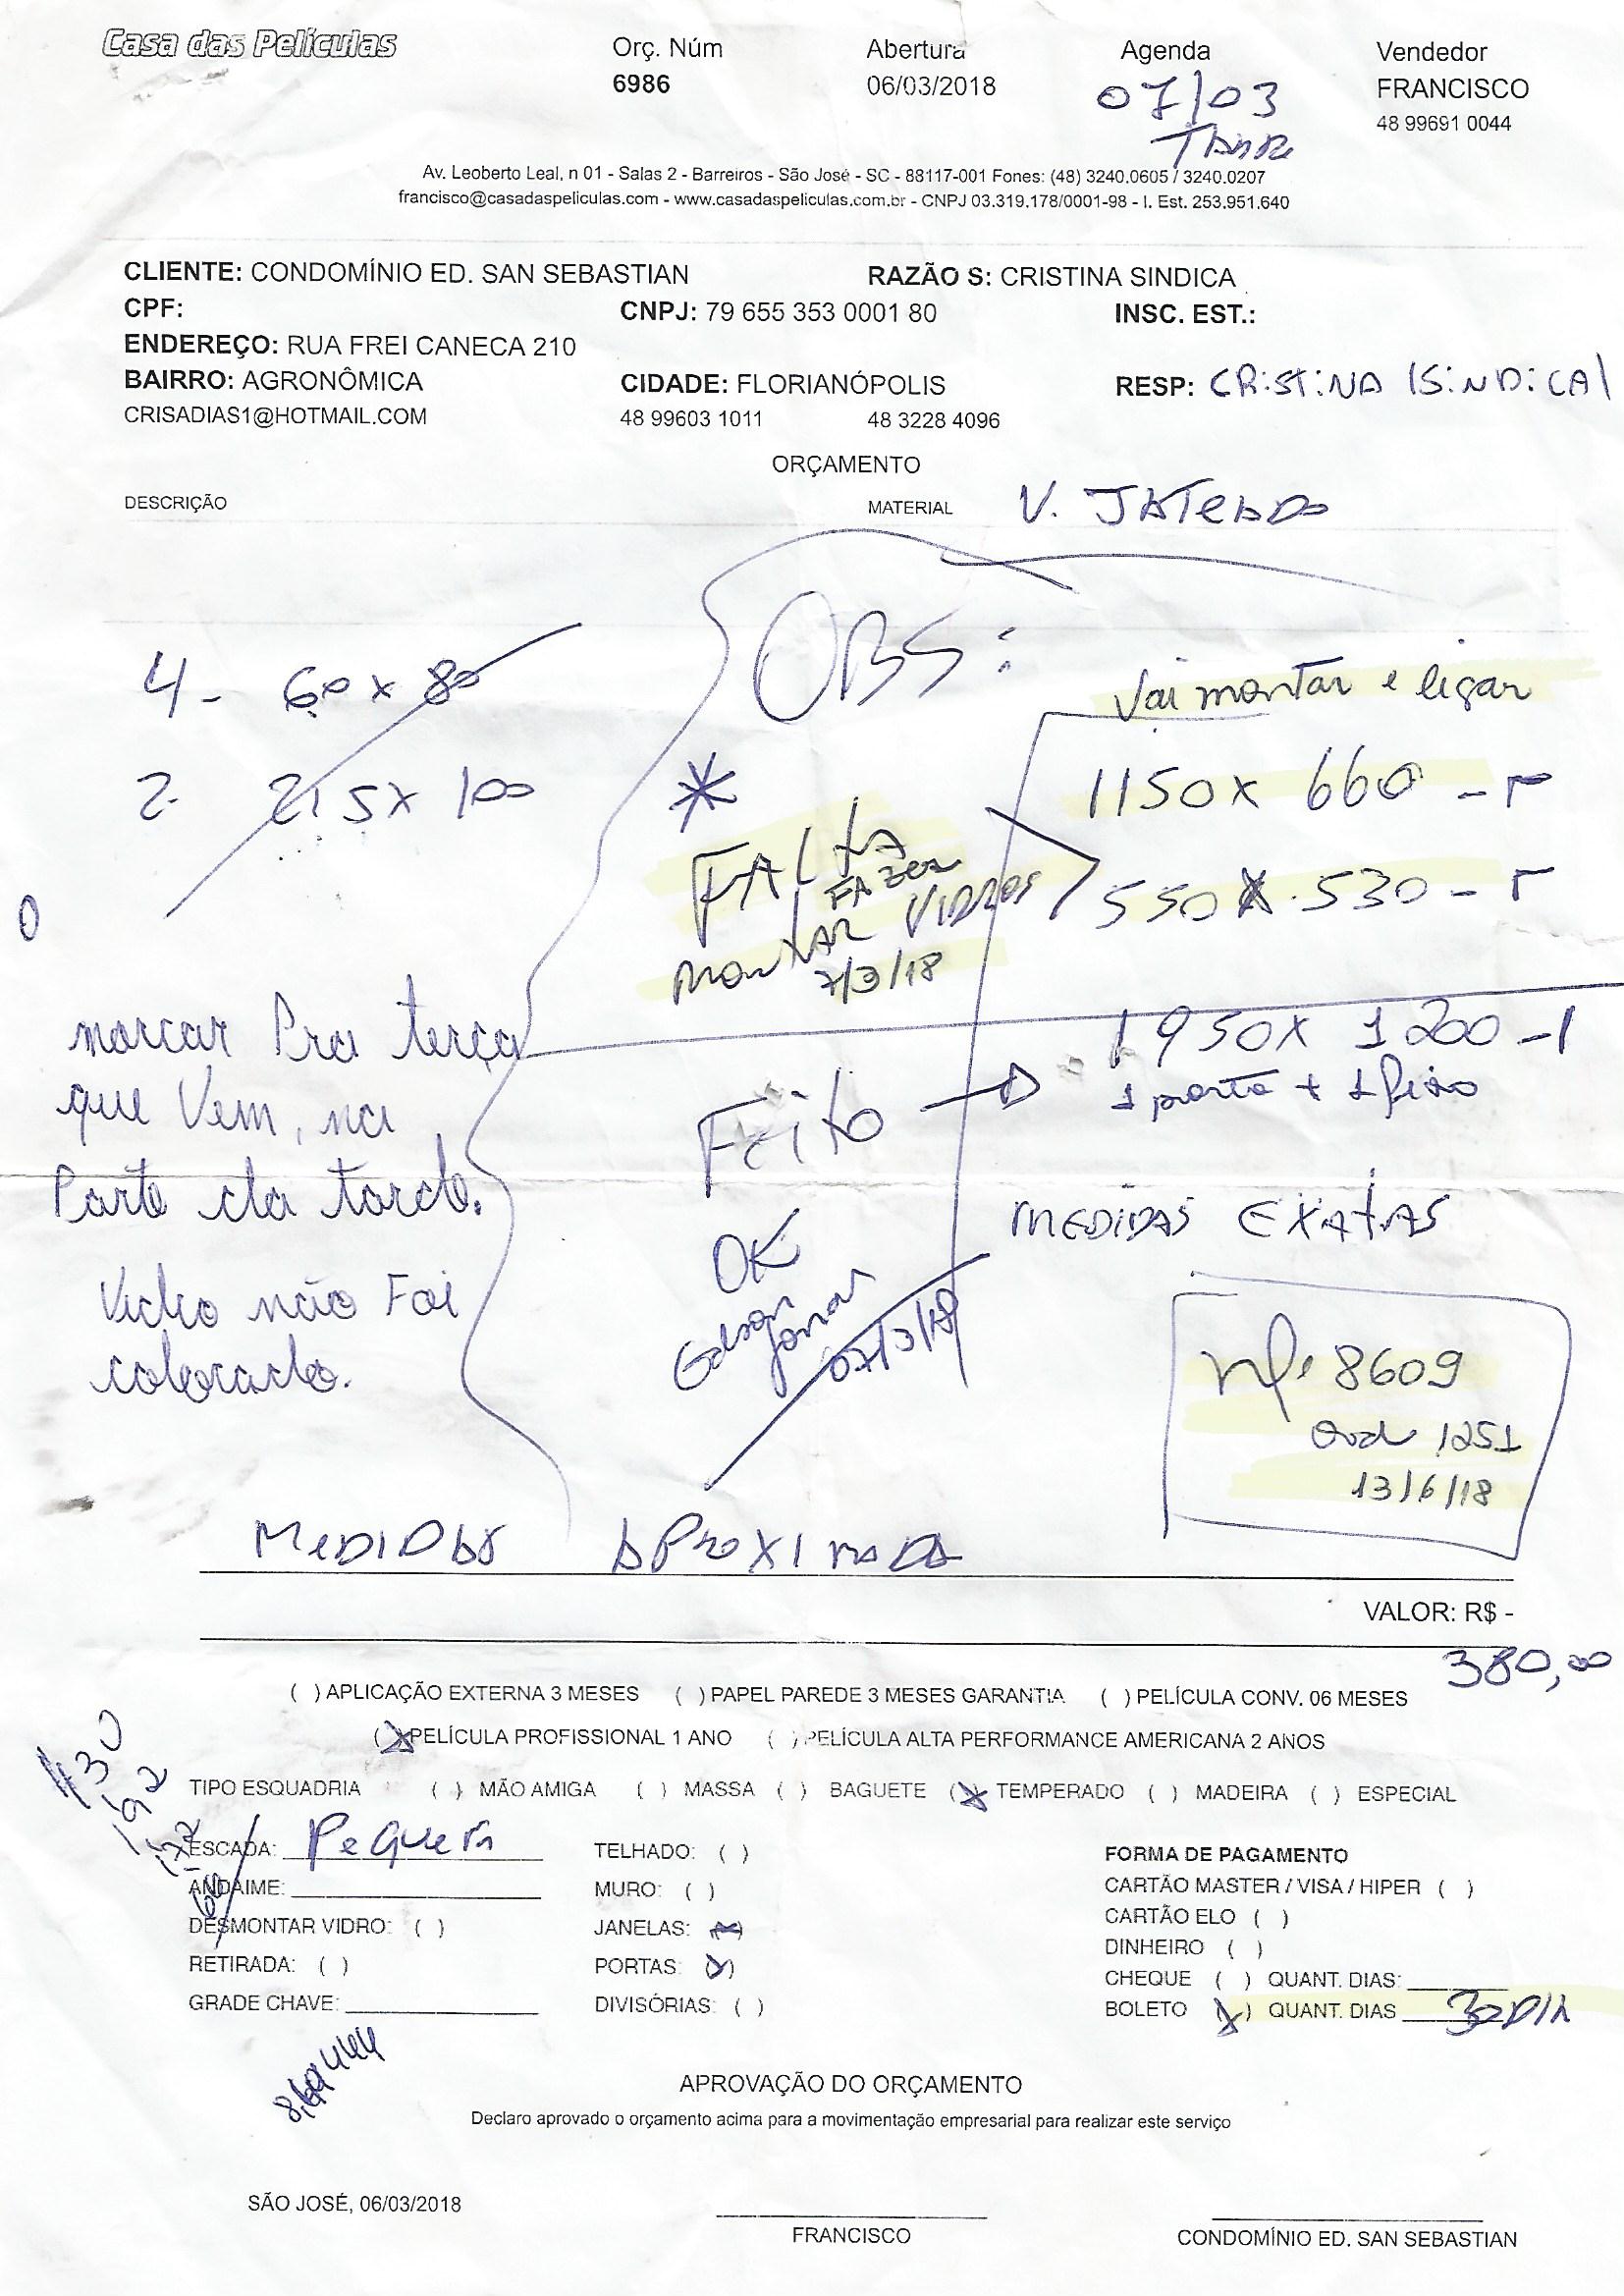 Casa das Películas
Orç. Núm
6986
Abertura
06/03/2018
Agenda
07/03
Vendedor
FRANCISCO
48 99691 0044
Av. Leoberto Leal, n 01 - Salas 2 - Barreiros - São José - SC - 88117-001 Fones: (48) 3240.0605 / 3240.0207
francisco@casadaspeliculas.com - www.casadaspeliculas.com.br - CNPJ 03.319.178/0001-98 - I. Est. 253.951.640
CLIENTE: CONDOMÍNIO ED. SAN SEBASTIAN RAZÃO S: CRISTINA SINDICA
CPF: CNPJ: 79 655 353 0001 80 INSC. EST.:
ENDEREÇO: RUA FREI CANECA 210
BAIRRO: AGRONÔMICA CIDADE: FLORIANÓPOLIS RESP: CRiSTiNA (SiNDiCA)
CRISADIAS1@HOTMAIL.COM 48 99603 1011 48 3228 4096
ORÇAMENTO
DESCRIÇÃO MATERIAL V. JATEADO
OBS:
4 - 60 x 80
2 - 215 x 100
Vai montar e ligar
1150 x 660 -
550 x 530 -
*
FALTA
FAZER
MONTAR VIDROS
7/3/18
0
1950 x 1200 - 1
1 porta + 1 fixo
Feito
marcar Pra terça
que Vem, na
Parte da tarde.
MEDIDAS EXATAS
OK
Edson
07/3/18
Vidro não Foi
colocado.
Nf. 8609
Ord 1251
13/6/18
MEDIDAS APROXIMADA
VALOR: R$ -
380,00
( ) APLICAÇÃO EXTERNA 3 MESES ( ) PAPEL PAREDE 3 MESES GARANTIA ( ) PELÍCULA CONV. 06 MESES
(X) PELÍCULA PROFISSIONAL 1 ANO ( ) PELÍCULA ALTA PERFORMANCE AMERICANA 2 ANOS
TIPO ESQUADRIA ( ) MÃO AMIGA ( ) MASSA ( ) BAGUETE (X) TEMPERADO ( ) MADEIRA ( ) ESPECIAL
430
192
ESCADA: Pequena
ANDAIME:
DESMONTAR VIDRO: ( )
RETIRADA: ( )
GRADE CHAVE:
TELHADO: ( )
MURO: ( )
JANELAS: (X)
PORTAS: (X)
DIVISÓRIAS: ( )
FORMA DE PAGAMENTO
CARTÃO MASTER / VISA / HIPER ( )
CARTÃO ELO ( )
DINHEIRO ( )
CHEQUE ( ) QUANT. DIAS:
BOLETO (X) QUANT. DIAS 30 DIA
APROVAÇÃO DO ORÇAMENTO
Declaro aprovado o orçamento acima para a movimentação empresarial para realizar este serviço
SÃO JOSÉ, 06/03/2018
FRANCISCO
CONDOMÍNIO ED. SAN SEBASTIAN